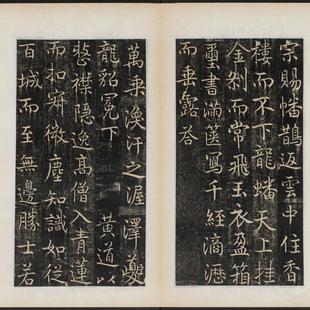 宗賜幡鵲返雲中住香
樓而不下龍蟠天上挂
金刹而常飛玉衣盈箱
璽書滿篋寫千經滴瀝
而垂露荅
萬乘渙汗之渥澤夔
龍貂冕下 黃道以
襟隱逸高僧入青蓮
而扣寂微塵知識如從
百城而至無邊勝士若